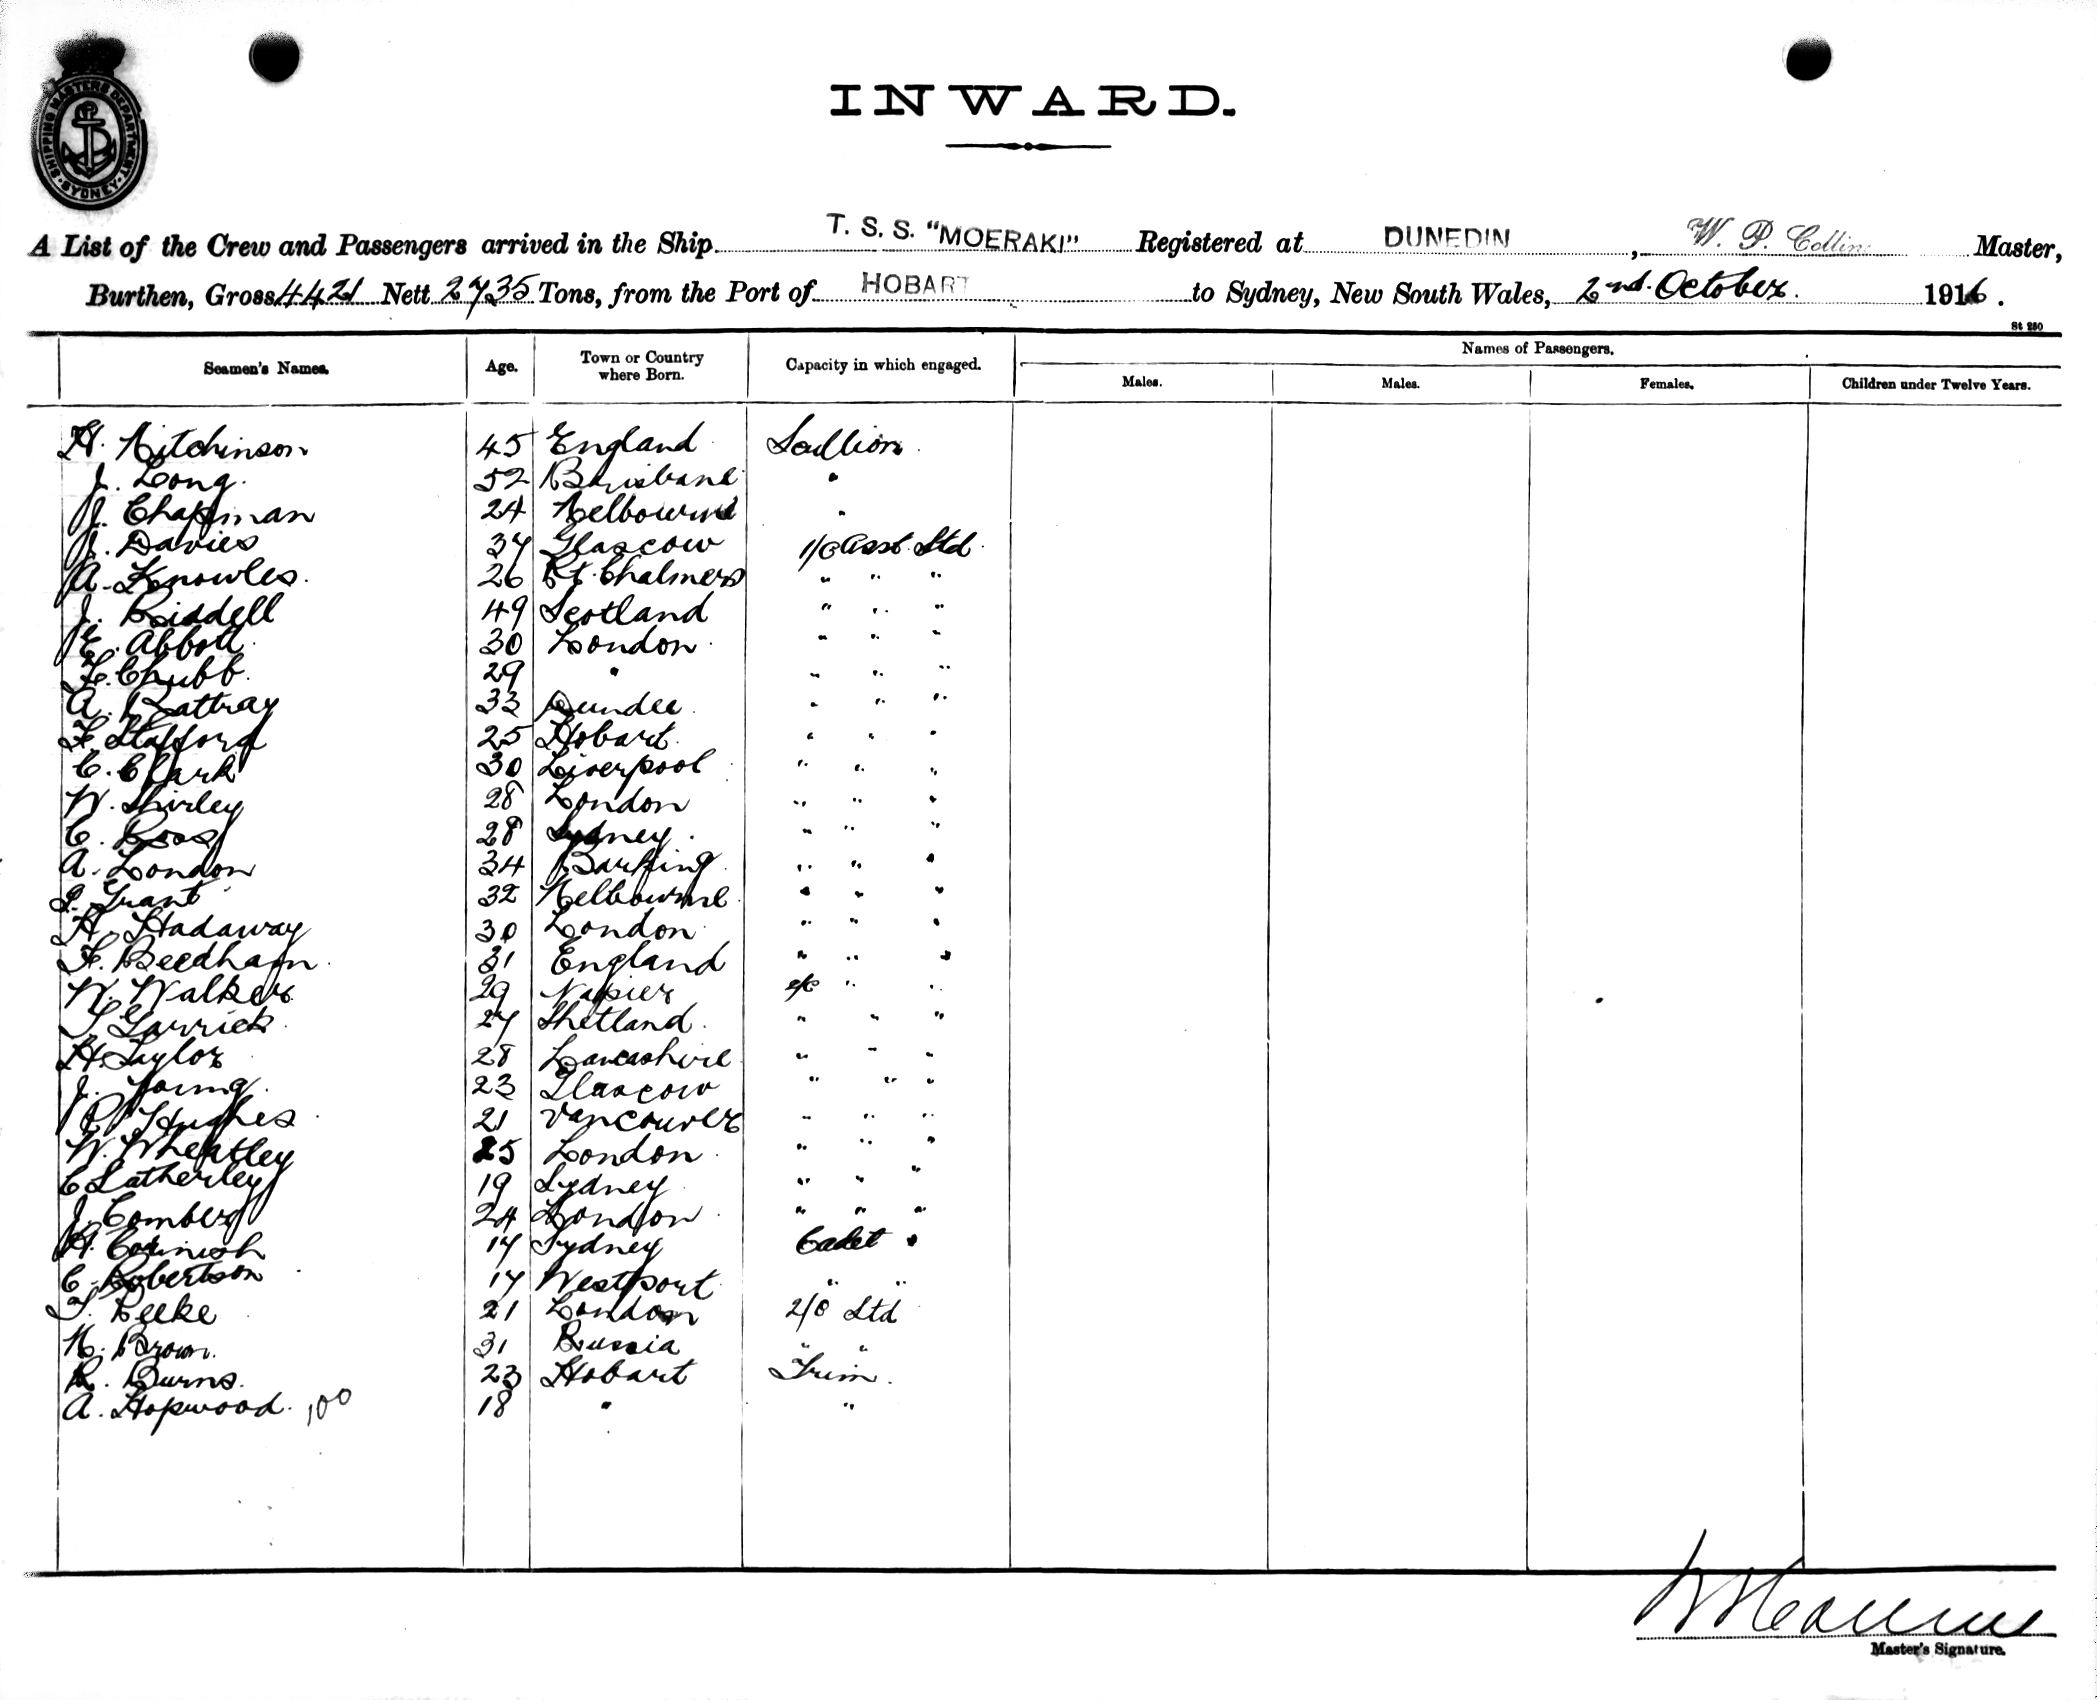 SHIPPING MASTERS DEPARTMENT SYDNEY
INWARD.
A List of the Crew and Passengers arrived in the Ship T. S. S. "MOERAKI" Registered at DUNEDIN, W. P. Collins Master,
Burthen, Gross 4421 Nett 2735 Tons, from the Port of HOBART to Sydney, New South Wales, 2nd October. 1916.
St 250
Seamen's Names. Age. Town or Country where Born. Capacity in which engaged. Names of Passengers.
Males. Males. Females. Children under Twelve Years.
H. Hitchinson 45 England Scullion
J. Long. 52 Brisbane "
J. Chapman 24 Melbourne "
J. Davies 37 Glascow 1/C Asst. Std.
A. Knowles. 26 Pt. Chalmers " " "
J. Riddell 49 Scotland " " "
E. Abbott 30 London " " "
F. Chubb. 29 " " " "
A. Rattray 33 Dundee " " "
F. Stafford 25 Hobart " " "
C. Clark 30 Liverpool " " "
W. Shirley 28 London " " "
C. Ross 28 Sydney " " "
A. London 34 Barking " " "
Grant 32 Melbourne " " "
H. Hadaway 30 London " " "
F. Beedham. 31 England " " "
W. Walker 29 Napier " "
T. Garrick 27 Shetland " " "
H. Taylor 28 Lancashire " " "
J. Young. 23 Glascow " " "
Hughes 21 Vancouver " " "
W. Wheatley 25 London " " "
C Latherley 19 Sydney " " "
J. Comber 24 London " " "
H. Cornish 17 Sydney Cadet "
C. Robertson 17 Westport " "
T. Leeke 21 London 2/C Std
N. Brown. 31 Russia " "
R. Burns. 23 Hobart Trim.
A. Hopwood. 100 18 " "
Master's Signature.